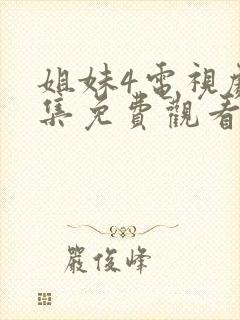 姐妹4電視劇
集免費觀看
嚴俊峰